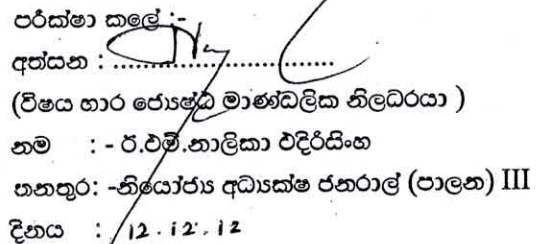 පරීක්ෂා කලේ :-
අත්සන : ........................................
(විෂය භාර ජ්‍යෙෂ්ඨ මාණ්ඩලික නිලධරයා )
නම : - ඊ.එම්.නාලිකා එදිරිසිංහ
තනතුර: -නියෝජ්‍ය අධ්‍යක්ෂ ජනරාල් (පාලන) III
දිනය : 12.12.12